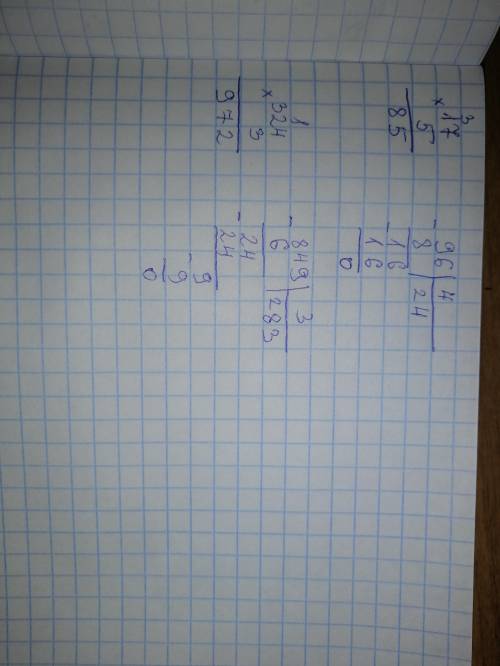 3
× 17
5
85
- 96 | 4
8 | 24
- 16
16
0
1
× 324
3
972
- 849 | 3
6 | 283
- 24
24
- 9
9
0